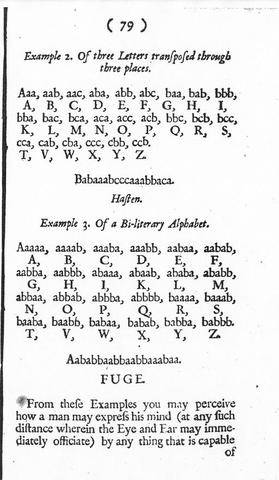 ( 79 )
Example 2. Of three Letters tranſpoſed through
three places.
Aaa, aab, aac, aba, abb, abc, baa, bab, bbb,
A, B, C, D, E, F, G, H, I,
bba, bac, bca, aca, acc, acb, bbc, bcb, bcc,
K, L, M, N, O, P, Q, R, S,
cca, cab, cba, ccc, cbb, ccb.
T, V, W, X, Y, Z.
Babaaabcccaaabbaca.
Haſten.
Example 3. Of a Bi-literary Alphabet.
Aaaaa, aaaab, aaaba, aaabb, aabaa, aabab,
A, B, C, D, E, F,
aabba, aabbb, abaaa, abaab, ababa, ababb,
G, H, I, K, L, M,
abbaa, abbab, abbba, abbbb, baaaa, baaab,
N, O, P, Q, R, S,
baaba, baabb, babaa, babab, babba, babbb.
T, V, W, X, Y, Z.
Aababbaabbaabbaaabaa.
FUGE.
From theſe Examples you may perceive
how a man may expreſs his mind (at any ſuch
diſtance wherein the Eye and Ear may imme-
diately officiate) by any thing that is capable
of